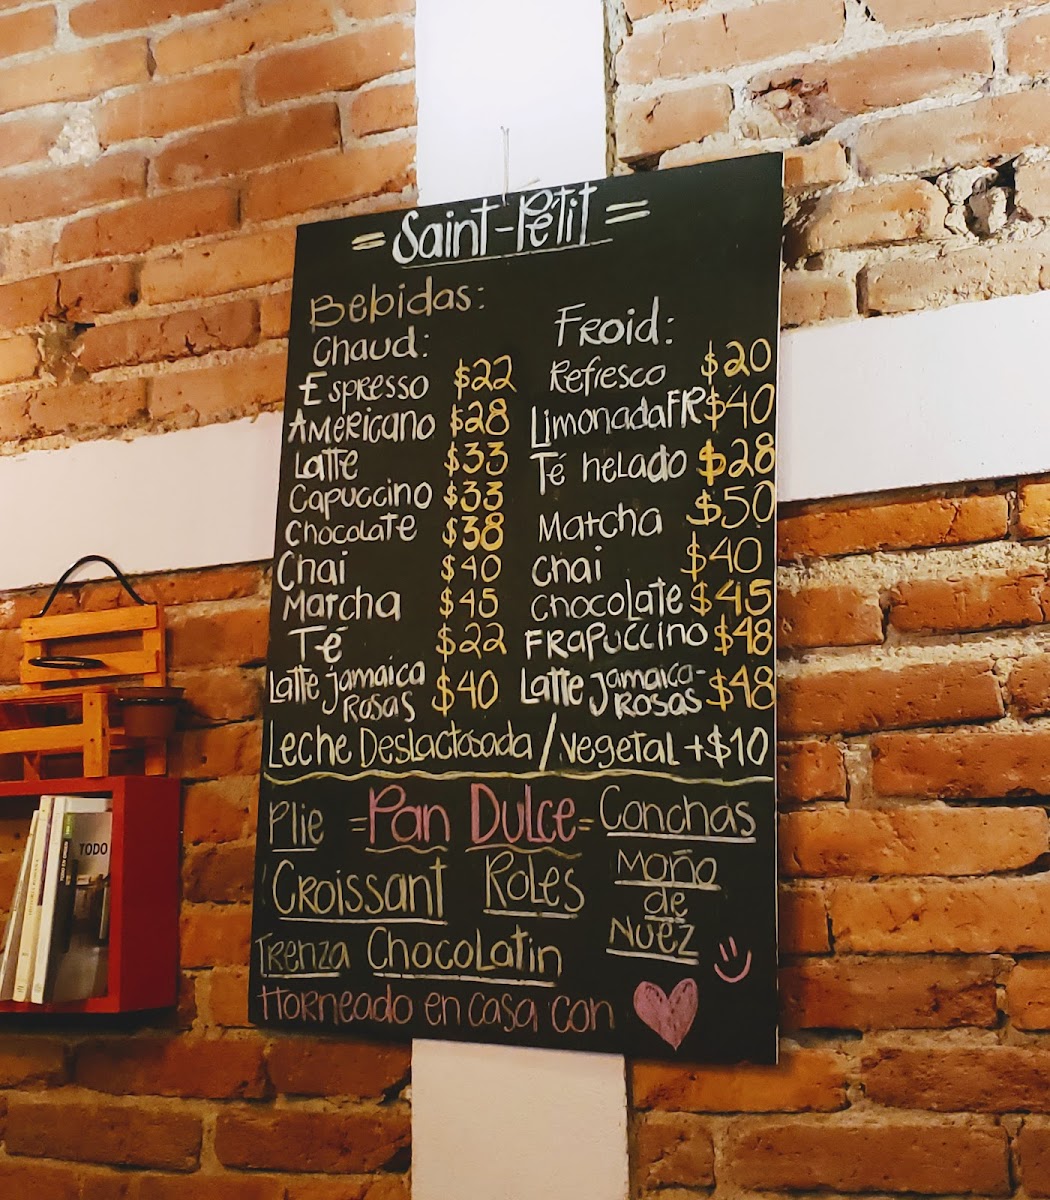 =Saint-Pétit=
Bebidas:
Chaud:
Espresso $22
Americano $28
Latte $33
Capuccino $33
Chocolate $38
Chai $40
Matcha $45
Té $22
Latte Jamaica Rosas $40
Froid:
Refresco $20
Limonada FR $40
Té helado $28
Matcha $50
Chai $40
Chocolate $45
Frapuccino $48
Latte Jamaica-Rosas $48
Leche Deslactosada / Vegetal +$10
Plie =Pan Dulce= Conchas
Croissant Roles Moño de Nuez
Trenza Chocolatin
Horneado en casa con
TODO